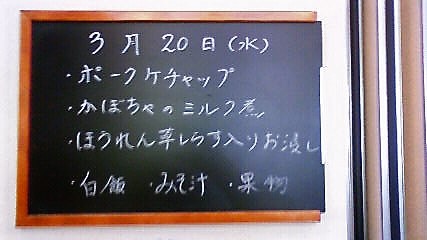 3月20日(水)
・ポークケチャップ
・かぼちゃのミルク煮
・ほうれん草しらす入りお浸し
・白飯 ・みそ汁 ・果物